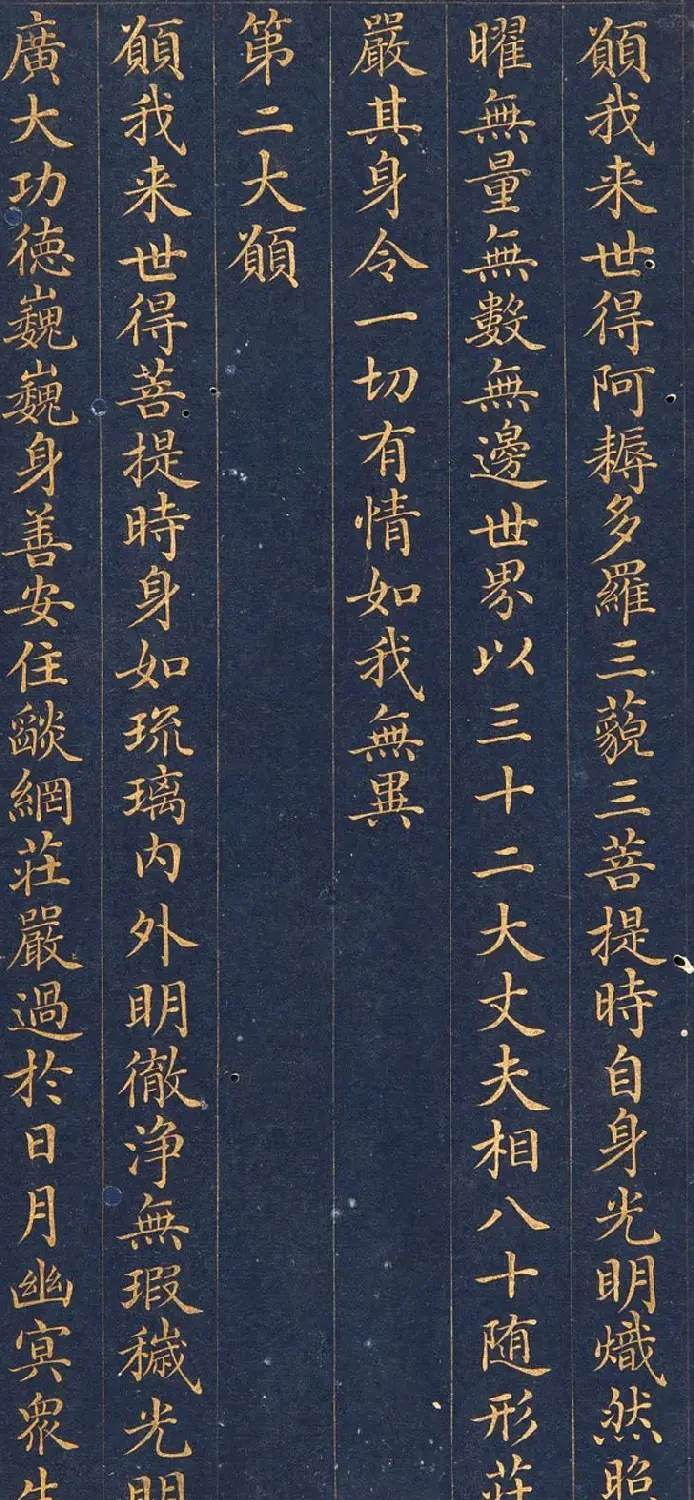 願我来世得阿耨多羅三藐三菩提時自身光明熾然照
曜無量無數無邊世界以三十二大丈夫相八十随形莊
嚴其身令一切有情如我無異
第二大願
願我来世得菩提時身如琉璃内外明徹浄無瑕穢光明
廣大功徳巍巍身善安住燄網莊嚴過於日月幽冥衆生